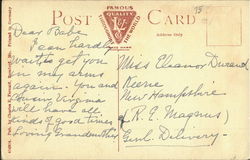 FAMOUS
QUALITY
POST CARD
THE WORLD
TRADE MARK
Address Only
15
Dear Babe
I can hardly
wait to get you
in my arms
again. You and
Cousin Virginia
will have all
kinds of good times
Loving Grandmother
Miss Eleanor Durand
Keene
New Hampshire
℅ R. E. Magnus)
Genl. Delivery-